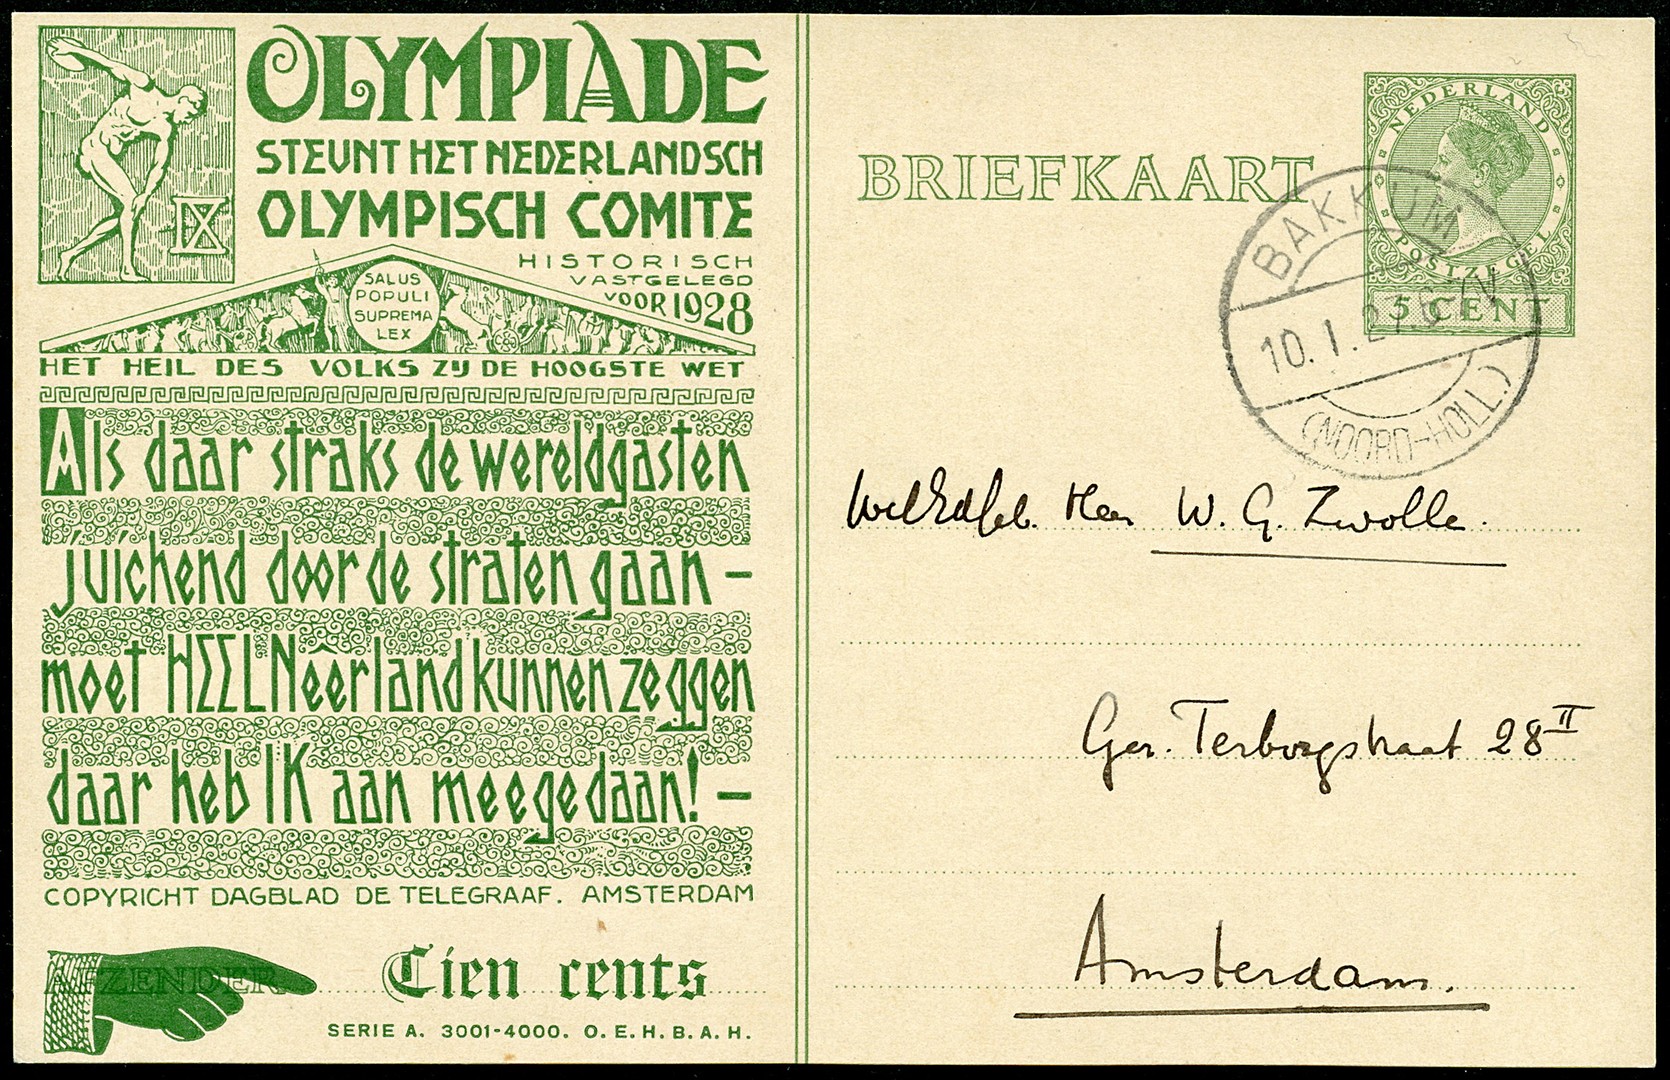 OLYMPIADE
STEUNT HET NEDERLANDSCH
OLYMPISCH COMITE
IX
HISTORISCH
VASTGELEGD
VOOR 1928
SALUS
POPULI
SUPREMA
LEX
HET HEIL DES VOLKS ZIJ DE HOOGSTE WET
Als daar straks de wereldgasten
juichend door de straten gaan –
moet HEEL Neêrland kunnen zeggen
daar heb IK aan meegedaan! –
COPYRICHT DAGBLAD DE TELEGRAAF. AMSTERDAM
AFZENDER
Tien cents
SERIE A. 3001-4000. O. E. H. B. A. H.
BRIEFKAART
NEDERLAND
POSTZEGEL
5 CENT
BAKKUM
10. 1. 2
(NOORD-HOLL.)
WelEdGeb. Heer W. G. Zwolle.
Ger. Terborgstraat 28 II
Amsterdam.